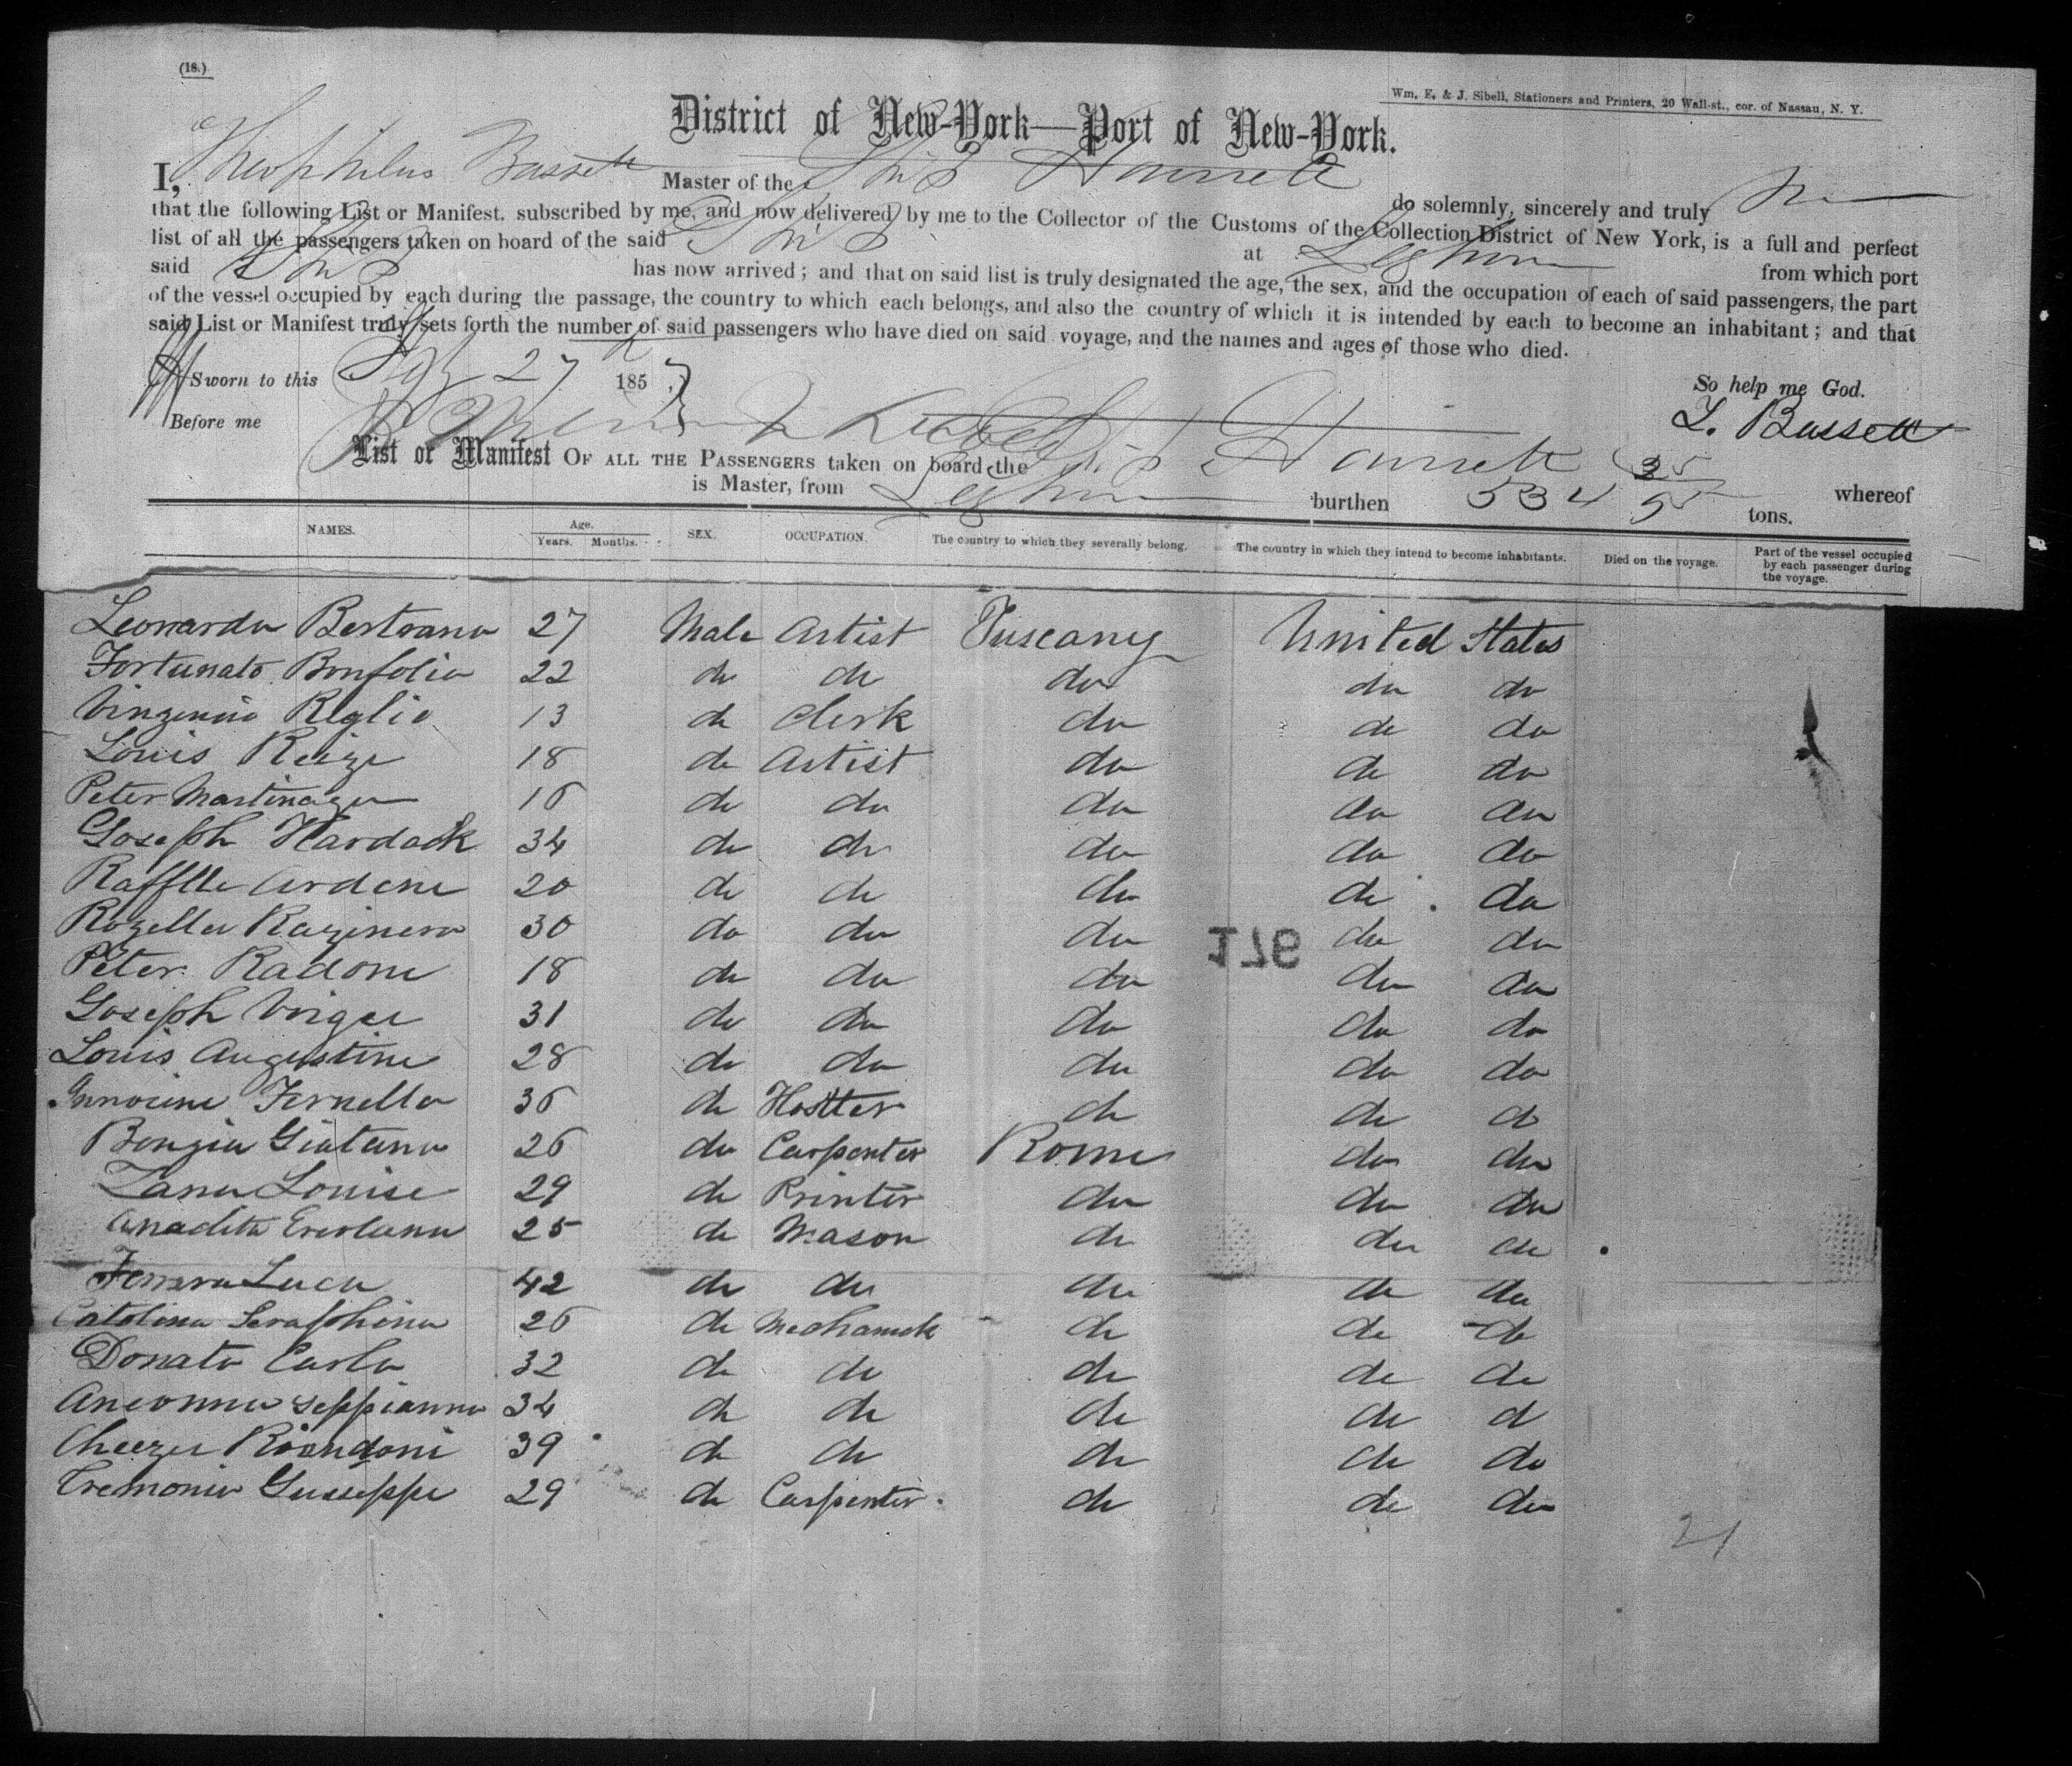 (18.)
Wm. E. & J. Sibell, Stationers and Printers, 20 Wall-st., cor. of Nassau, N. Y.
District of New-York—Port of New-York.
I, Theophilus Bassett Master of the Ship Harriett do solemnly, sincerely and truly
that the following List or Manifest, subscribed by me, and now delivered by me to the Collector of the Customs of the Collection District of New York, is a full and perfect
list of all the passengers taken on board of the said Ship at Leghorn from which port
said Ship has now arrived; and that on said list is truly designated the age, the sex, and the occupation of each of said passengers, the part
of the vessel occupied by each during the passage, the country to which each belongs, and also the country of which it is intended by each to become an inhabitant; and that
said List or Manifest truly sets forth the number of said passengers who have died on said voyage, and the names and ages of those who died.
Sworn to this 27 185 So help me God.
Before me T. Bassett
List or Manifest OF ALL THE PASSENGERS taken on board the Ship Harriett whereof
is Master, from Leghorn burthen 534 tons.
NAMES. Age. Years. Months. SEX. OCCUPATION. The country to which they severally belong. The country in which they intend to become inhabitants. Died on the voyage. Part of the vessel occupied by each passenger during the voyage.
Leonardo Bertrano 27 Male Artist Tuscany United States
Fortunato Bonfolio 22 do do do do do
Reglio 13 do Clerk do do do
Louis Reize 18 do Artist do do do
Peter 16 do do do do do
Goseph Hardack 34 do do do do do
Rafflle Ardene 20 do do do do do
Rozella 30 do do do do do
Peter Radone 18 do do do do do
176
Goseph 31 do do do do do
Louis Augustine 28 do do do do do
Fernello 36 do Hostter do do do
Giatano 26 do Carpenter Rome do do
Zana Louise 29 do Printer do do do
25 do Mason do do do
Luca 42 do do do do do
Catolina Seraphino 26 do Mechanick do do do
Donato Carlo 32 do do do do do
34 do do do do d
Cheezer Riondoni 39 do do do do do
Cremonio Guseppe 29 do Carpenter do do do
21